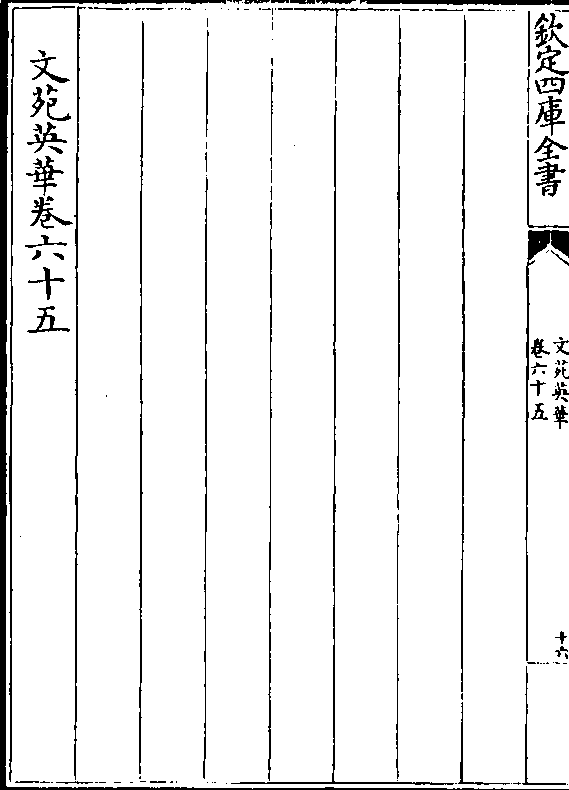 欽定四庫全書
文苑英華
卷六十五
十六
文苑英華卷六十五